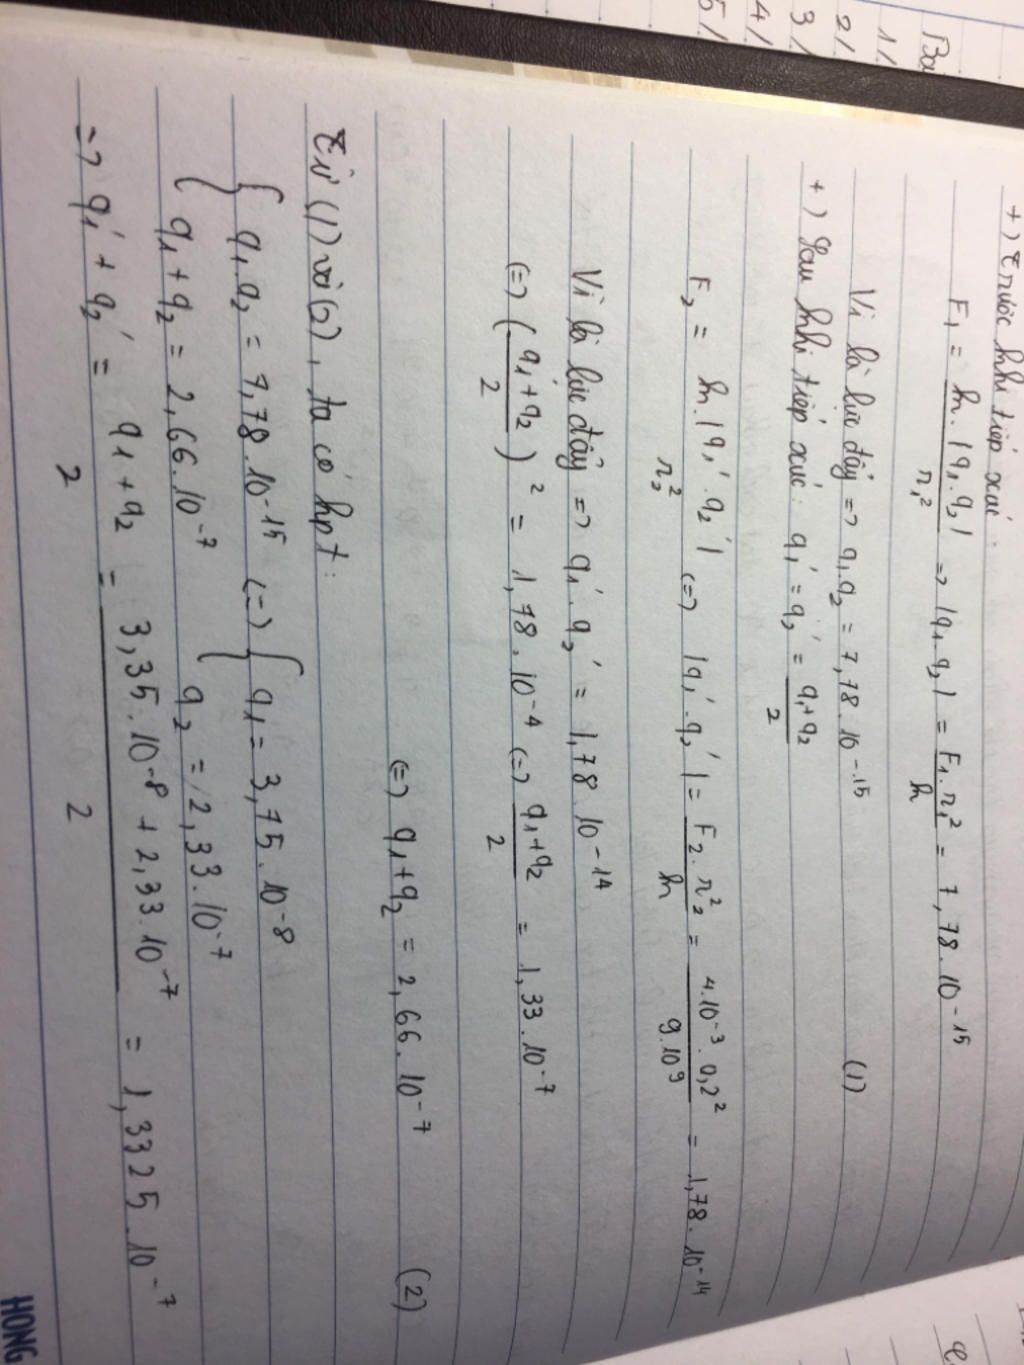 Bà
1/
2/
3/
4/
5/
+) Trước khi tiếp xúc:
F₁ = k.|q₁.q₂| / r₁² => |q₁.q₂| = F₁.r₁² / k = 7,78.10⁻¹⁵
Vì là lực đẩy => q₁q₂ = 7,78.10⁻¹⁵ (1)
+) Sau khi tiếp xúc: q₁' = q₂' = q₁+q₂ / 2
F₂ = k.|q₁'.q₂'| / r₂² (=) |q₁'.q₂'| = F₂.r₂² / k = 4.10⁻³.0,2² / 9.10⁹ = 1,78.10⁻¹⁴
Vì là lực đẩy => q₁'.q₂' = 1,78.10⁻¹⁴
(=) (q₁+q₂ / 2)² = 1,78.10⁻⁴ (=) q₁+q₂ / 2 = 1,33.10⁻⁷
(=) q₁+q₂ = 2,66.10⁻⁷ (2)
Từ (1) và (2), ta có hpt:
{ q₁.q₂ = 7,78.10⁻¹⁵ (=) { q₁ = 3,75.10⁻⁸
{ q₁+q₂ = 2,66.10⁻⁷ { q₂ = 2,33.10⁻⁷
=> q₁' + q₂' = q₁+q₂ / 2 = 3,35.10⁻⁸ + 2,33.10⁻⁷ / 2 = 1,3325.10⁻⁷
HONG